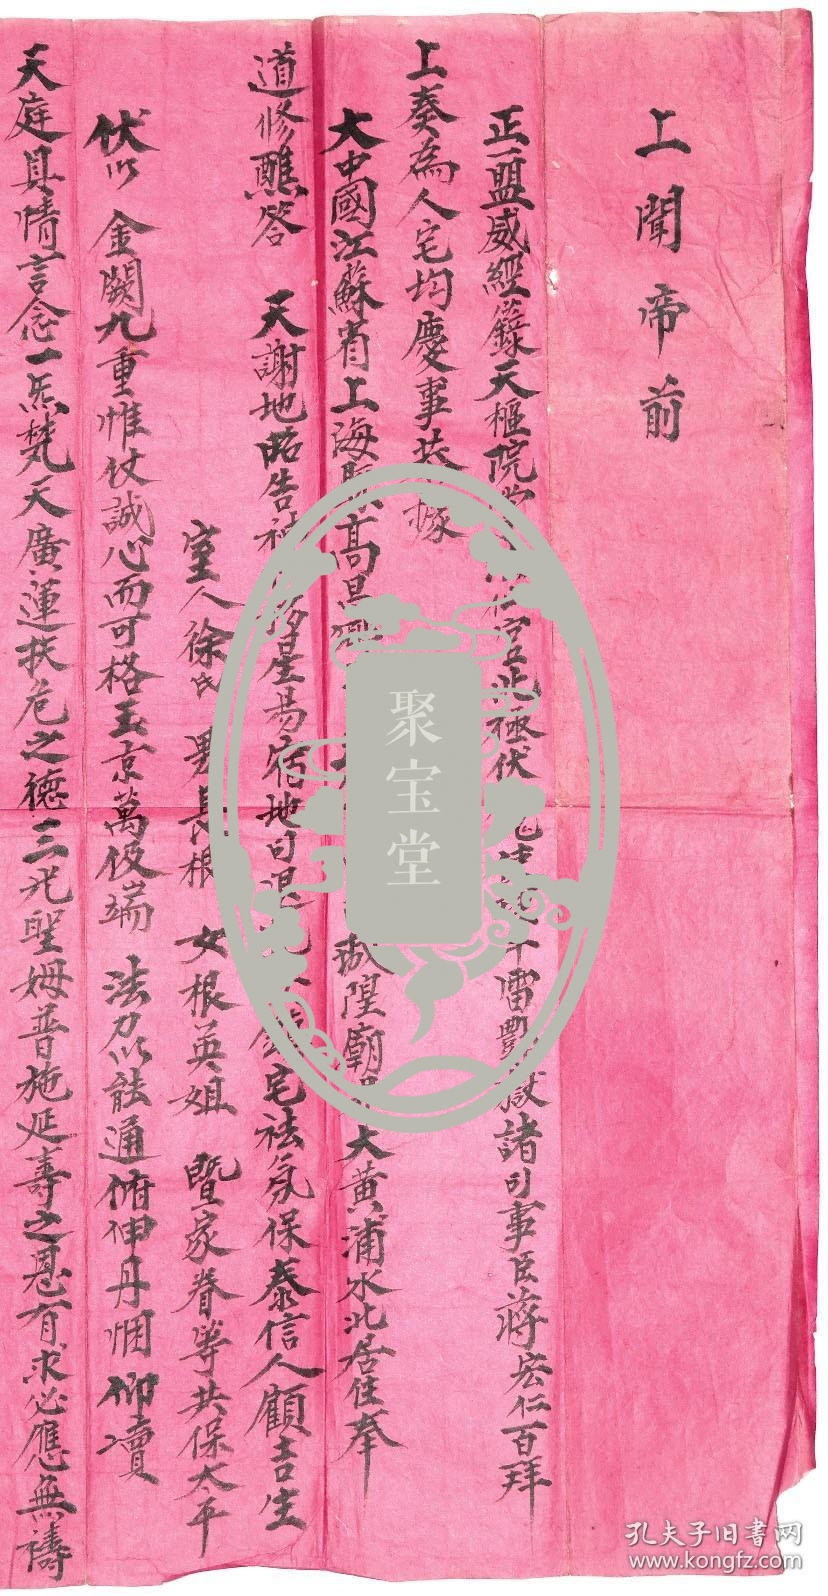 上聞帝前
正一盟威經籙天樞院 宮北極伏 雷酆嶽諸司事臣蔣宏仁百拜
上奏為人宅均慶事恭據
大中國江蘇省上海縣高昌 隍廟 大黃浦水北居住奉
道修醮答 天謝地昭告神 星易宿地司 宅祛氛保泰信人顧吉生
室人徐氏 男長根 女根英姐 暨家眷等共保太平
伏以 金闕九重惟仗誠心而可格玉京萬伋端 法力以能通俯伸丹悃仰瀆
天庭具情言念一炁梵天廣運扶危之德三光聖姆普施延壽之恩有求必應無禱
聚宝堂
孔夫子旧书网
www.kongfz.com